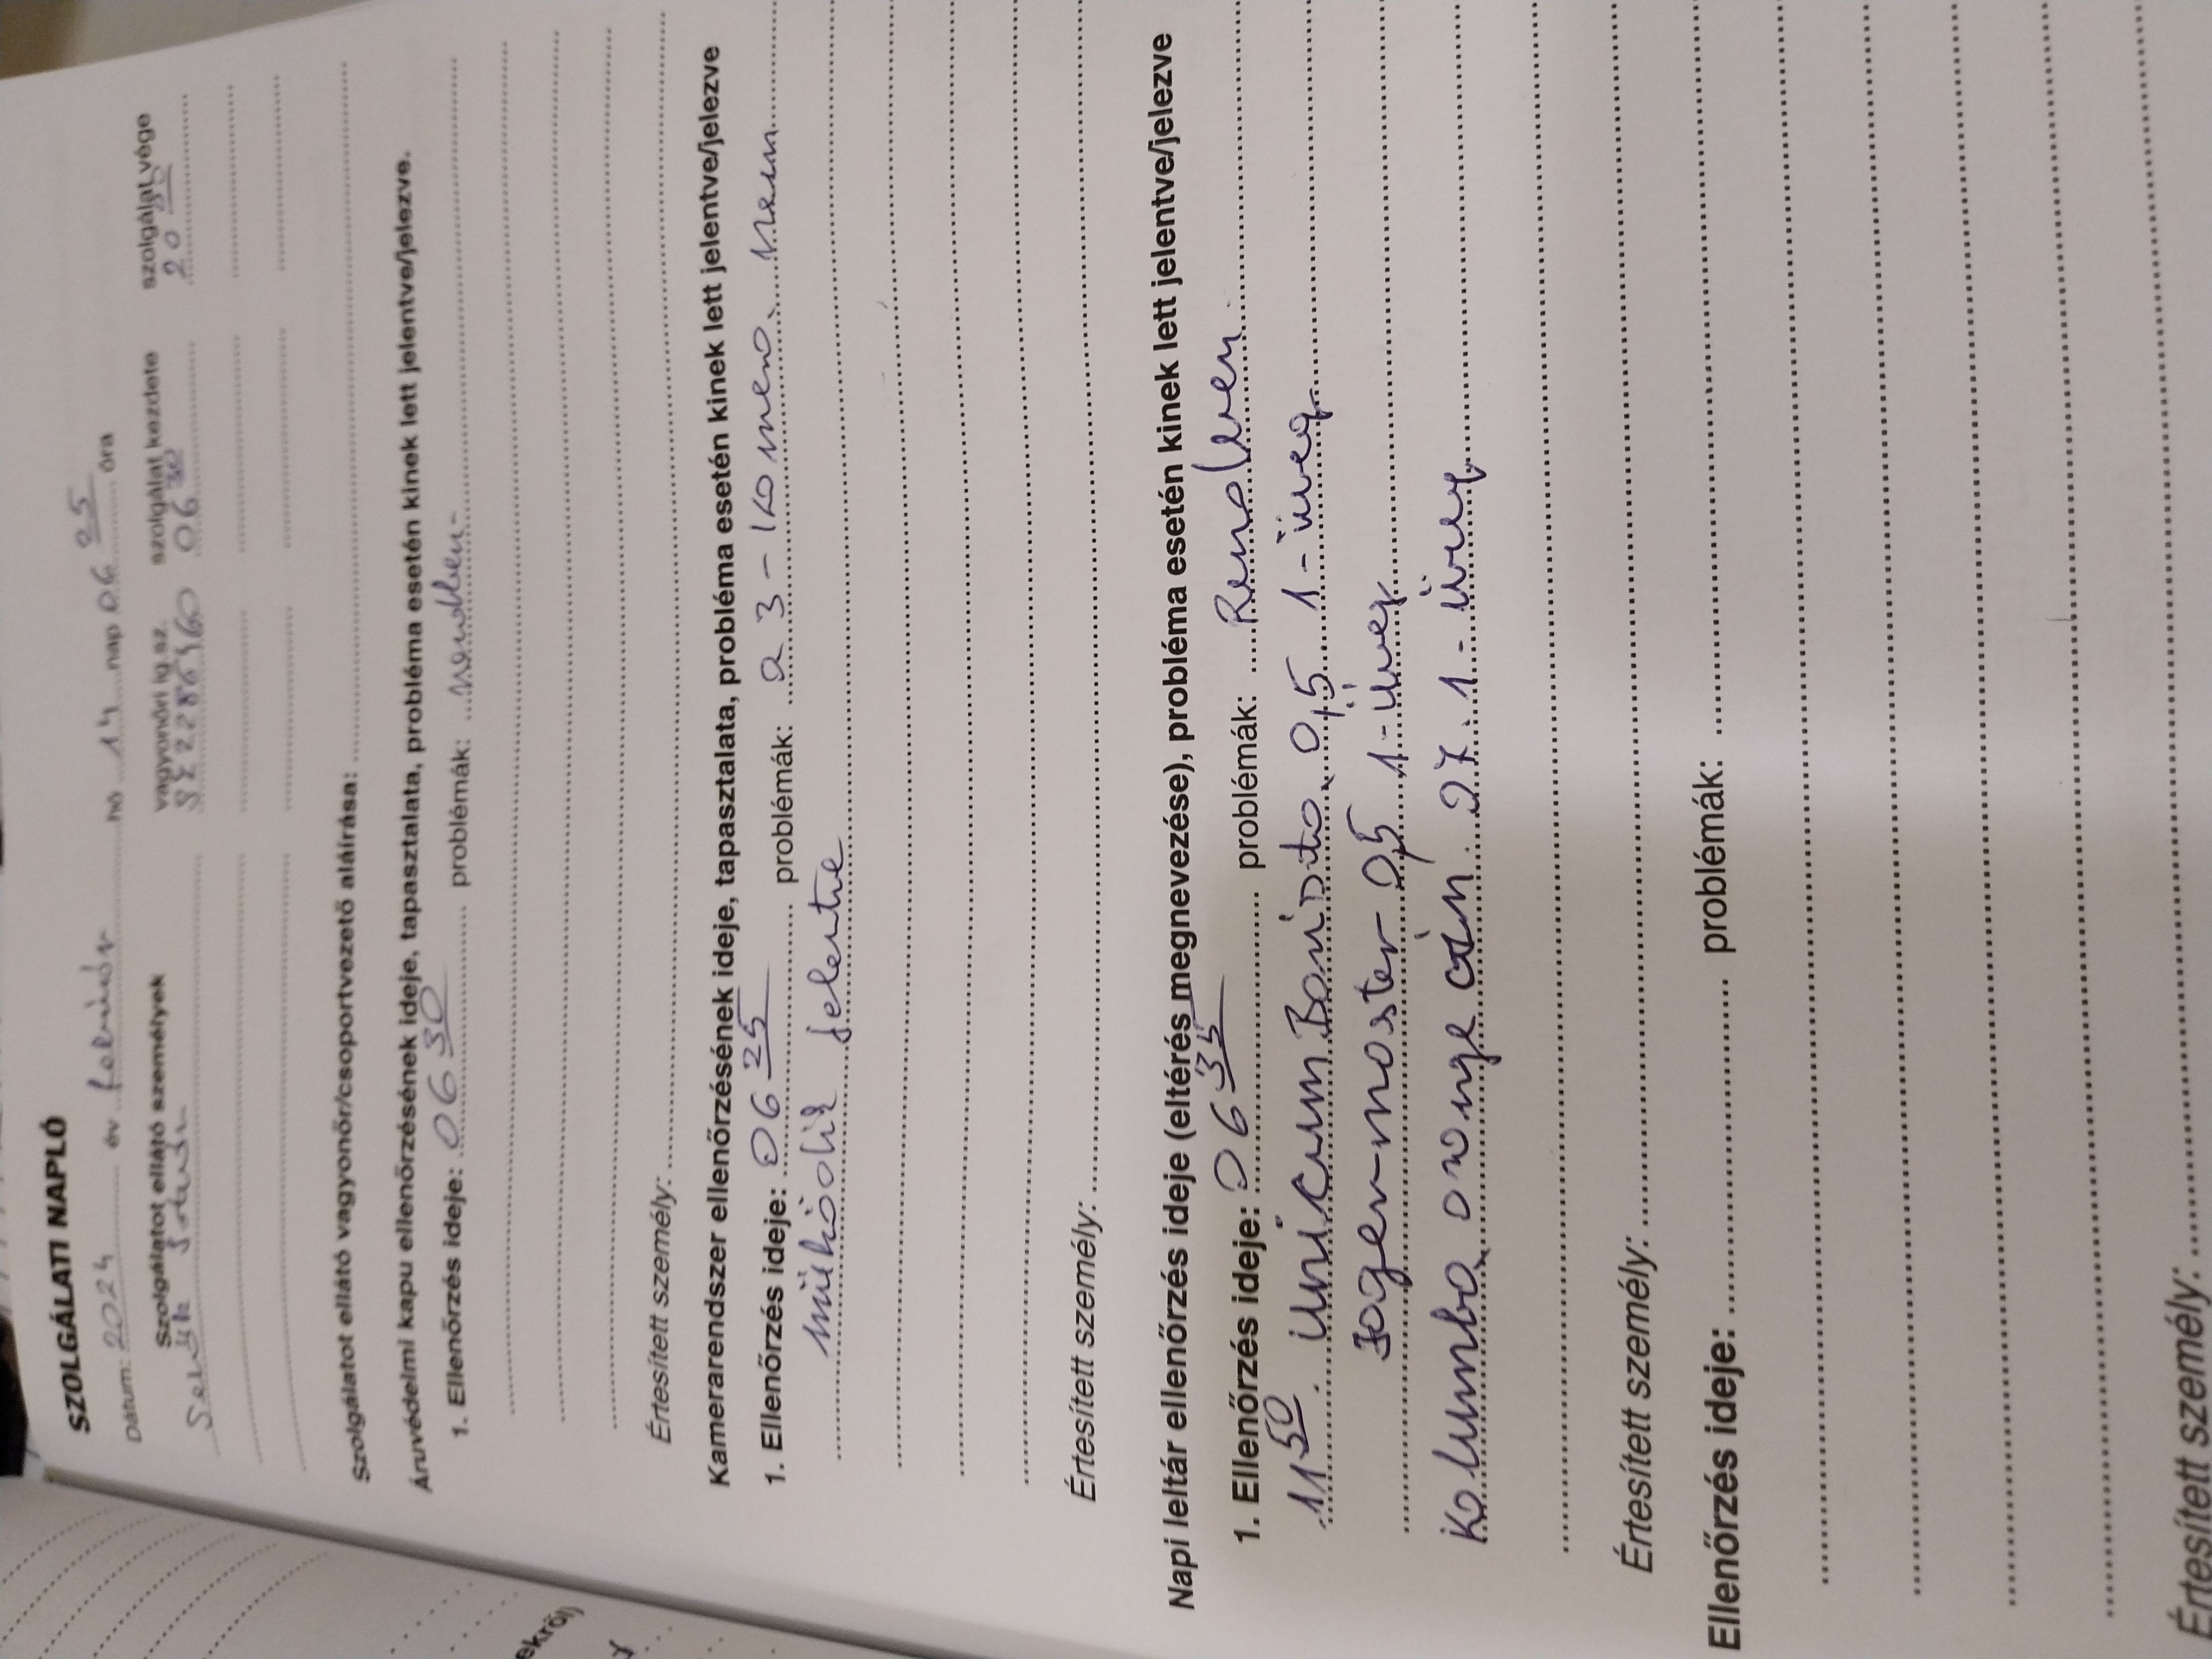 SZOLGÁLATI NAPLÓ
Dátum: 2024 év február hó 14 nap 06 25 óra
Szolgálatot ellátó személyek vagyonőri ig.sz. szolgálat kezdete szolgálat vége
06 30 20
Szolgálatot ellátó vagyonőr/csoportvezető aláírása:
Áruvédelmi kapu ellenőrzésének ideje, tapasztalata, probléma esetén kinek lett jelentve/jelezve.
1. Ellenőrzés ideje: 06 30 problémák: rendben
Értesített személy:
Kamerarendszer ellenőrzésének ideje, tapasztalata, probléma esetén kinek lett jelentve/jelezve
1. Ellenőrzés ideje: 06 25 problémák: a 3-kamera nem
működik jelentve
Értesített személy:
Napi leltár ellenőrzés ideje (eltérés megnevezése), probléma esetén kinek lett jelentve/jelezve
1. Ellenőrzés ideje: 06 35 problémák: Rendben
11 50. Unicum Barista 0,5 1-üveg
Jager-master 0,5 1-üveg
Kalumba orange gin 0,7. 1.-üveg
Értesített személy:
Ellenőrzés ideje: problémák:
Értesített személy:
ekről)